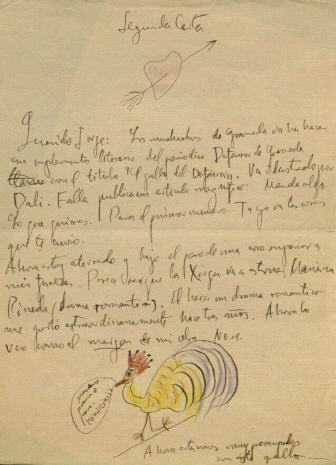 Segunda Carta
Querido Jorge: Los muchachos de Granada va hacer
un suplemento literario del periodico Defensor de Granada
con el titulo "El gallo del Defensor". Va ilustrado por
Dalí. Falla publica un articulo magnifico. Manda algo.
Lo que quieras. Para el primer numero. Tu ya ves
que te envio.
Ahora estoy aterrado y bajo el peso de una cosa superior a
mis fuerzas. Parece ser que la Xirgu va a estrenar Mariana
Pineda (drama romantico). El hacer un drama romantico
me gustó extraordinariamente hace tres años. Ahora lo
veo como al margen de mi obra. No se.
Ahora estamos muy preocupados
con este gallo